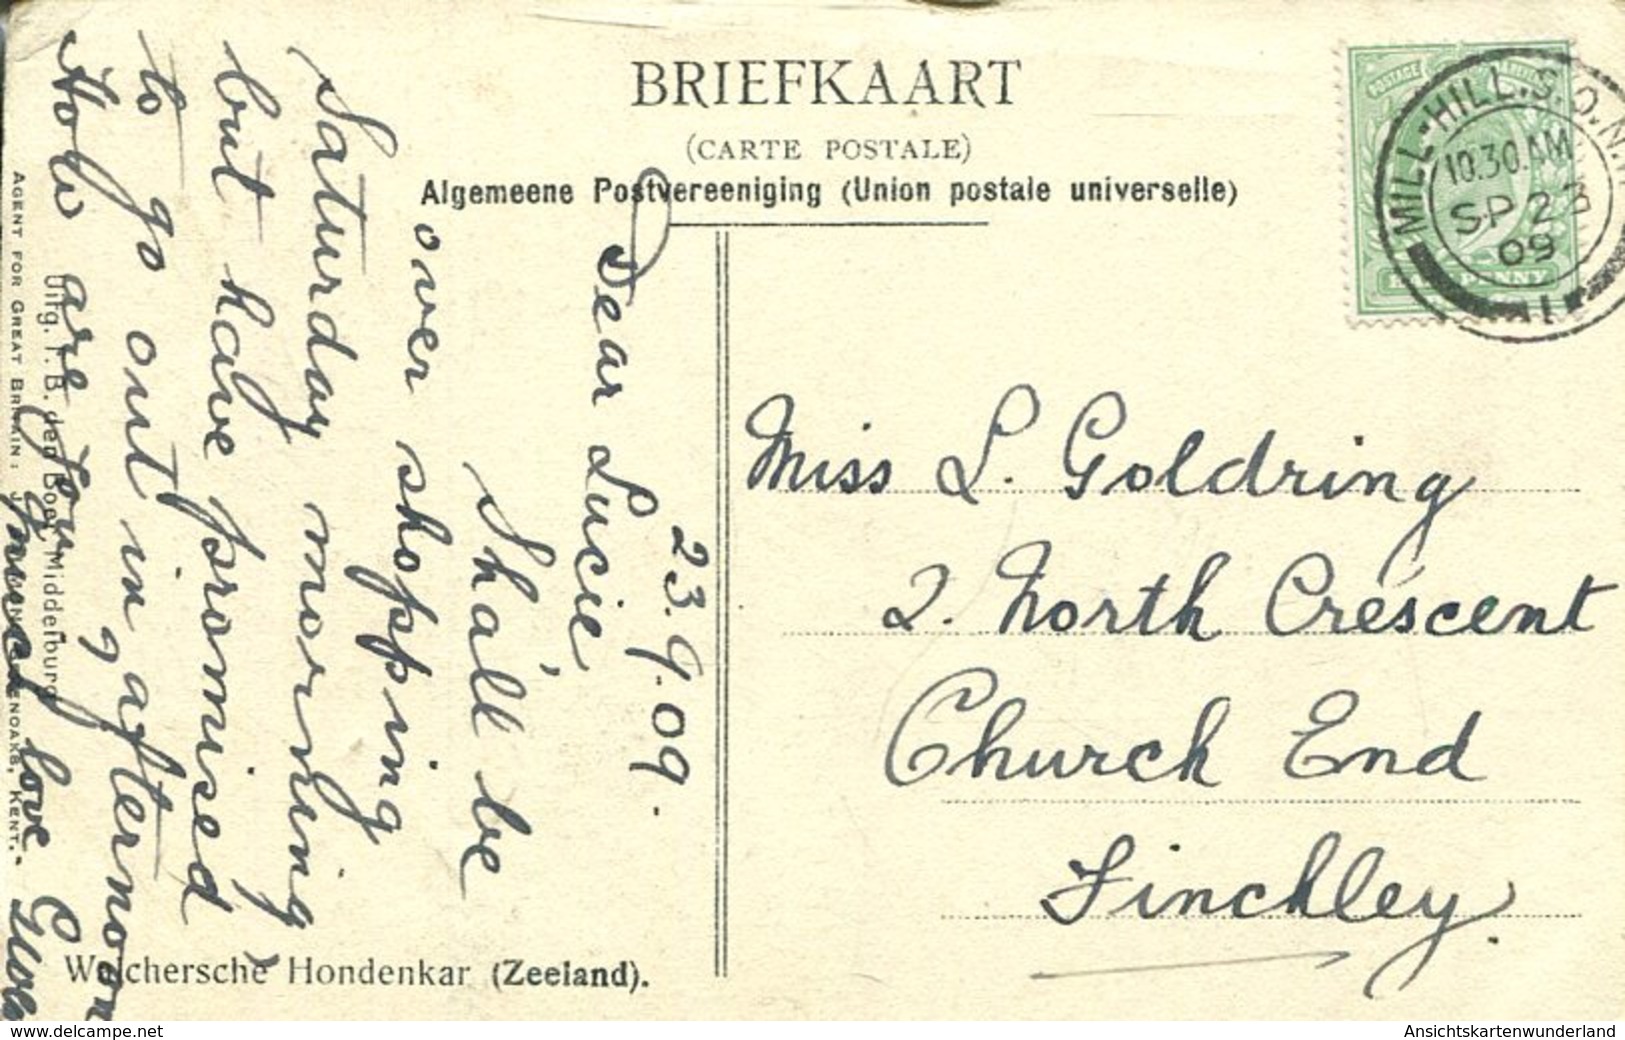 BRIEFKAART
(CARTE POSTALE)
Algemeene Postvereeniging (Union postale universelle)
MILL-HILL.S.O.
10.30.AM
SP 23
09
POSTAGE
PENNY
23.9.09.
Dear Lucie,
Shall be
over shopping
Saturday morning,
but have promised
to go out in afternoon
How are you
love
Miss L. Goldring
2. North Crescent
Church End
Finchley.
Walchersche Hondenkar (Zeeland).
Uitg. F. B. den Boer, Middelburg.
AGENT FOR GREAT BRITAIN: KENT.
www.delcampe.net
Ansichtskartenwunderland